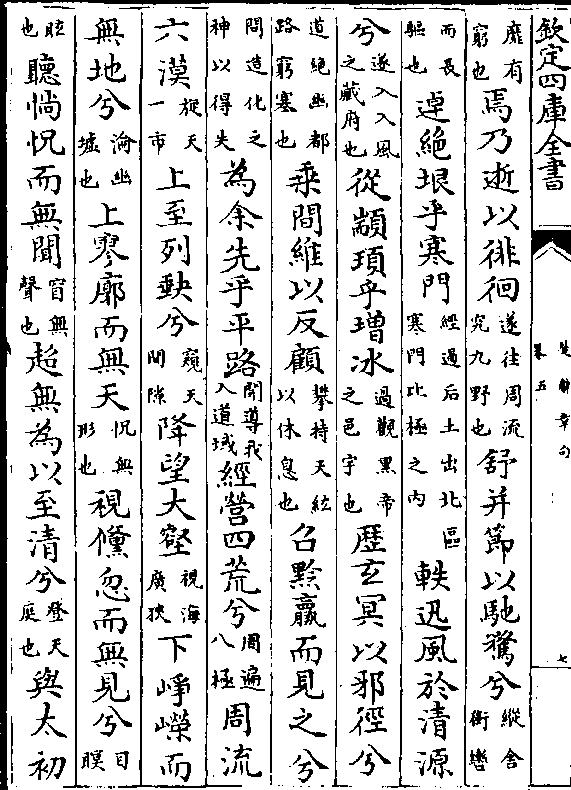 欽定四庫全書
楚辭章句
卷五
七
靡有窮也焉乃逝以徘徊遂往周流究九野也舒并節以馳騖兮縱舍銜轡
而長驅也逴絶垠乎寒門經過后土出北區寒門北極之内軼迅風於清源
兮遂入入風之藏府也從顓頊乎增冰過觀黒帝之邑宇也歴玄冥以邪徑兮
道絶幽都路窮塞也乗間維以反顧攀持天紘以休息也召黔羸而見之兮
問造化之神以得失為余先乎平路開導我入道域經營四荒兮周遍八極周流
六漠旋天一帀上至列缺兮窺天間隙降望大壑視海廣狹下崢嶸而
無地兮淪幽墟也上寥廓而無天怳無形也視儵忽而無見兮目瞑
眩也聽惝怳而無聞窈無聲也超無為以至清兮登天庭也與太初